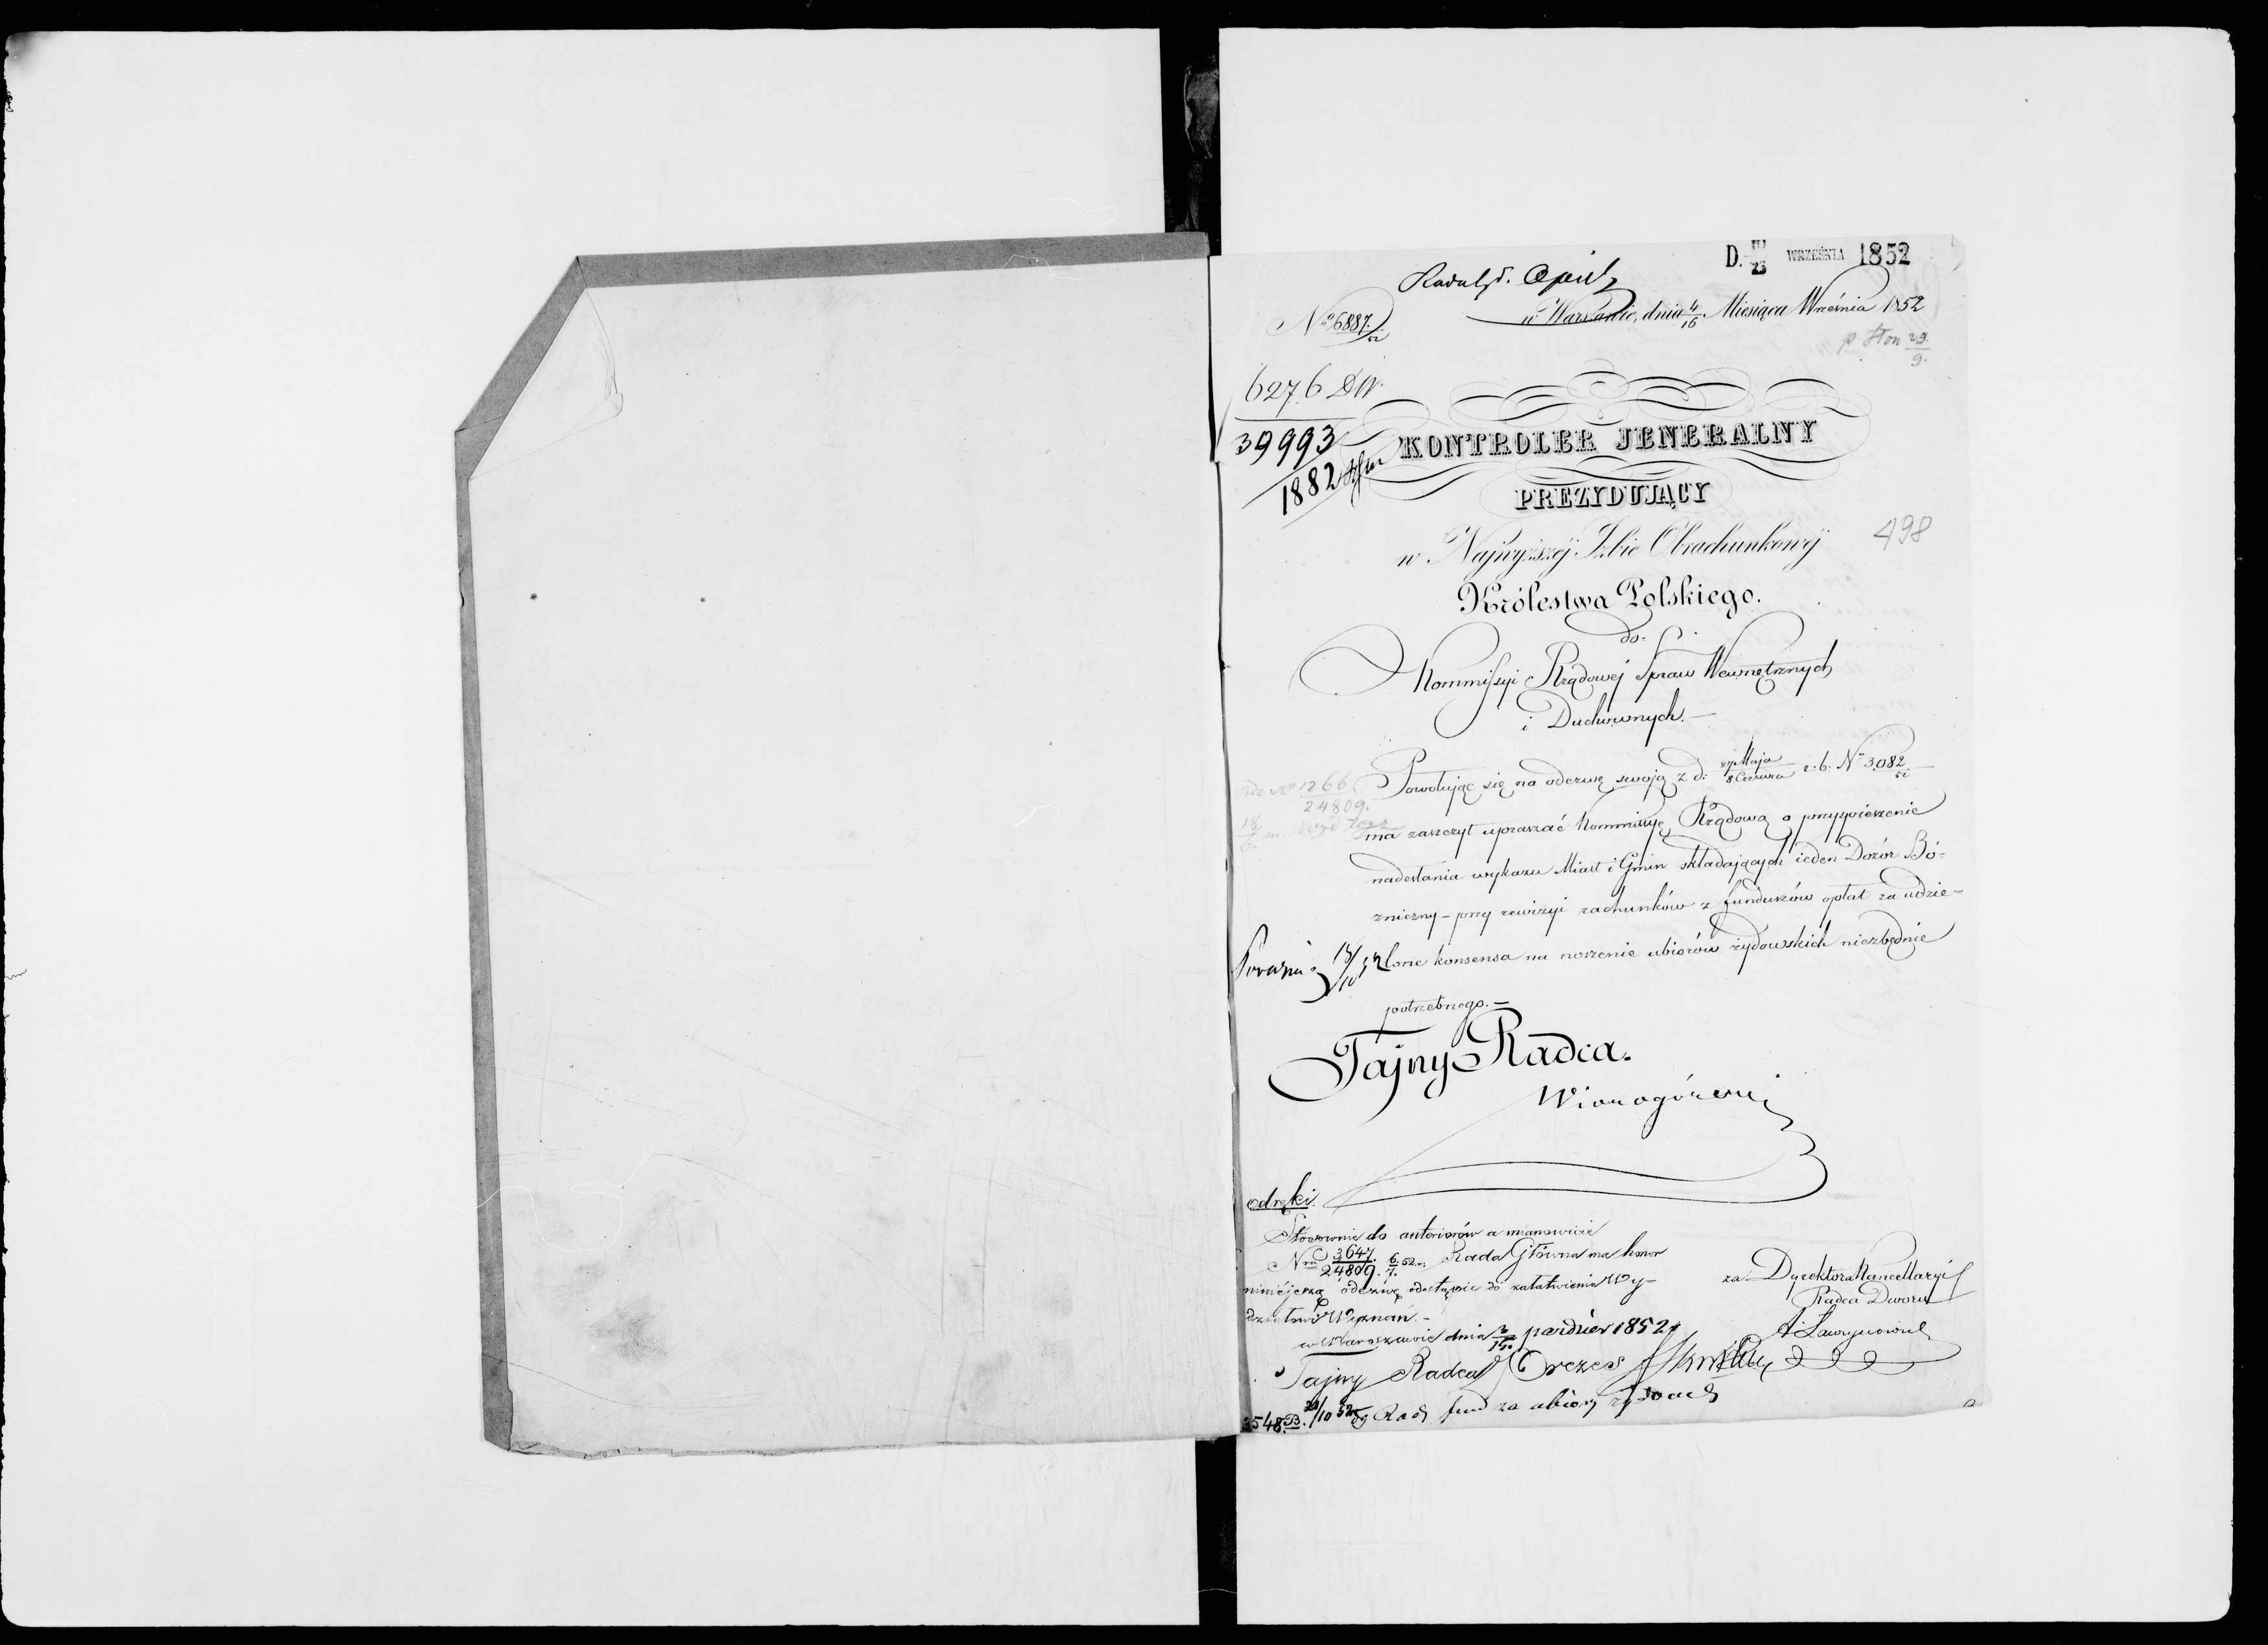 D. 11/23 WRZEŚNIA 1852
Rada Gł. Opiek
No 6887/52
w Warszawie, dnia 4/16 Miesiąca Września 1852
29/9.
6276 DW.
39993
1882
KONTROLER JENERALNY
PREZYDUJĄCY
w Najwyższej Izbie Obrachunkowej
498
Królestwa Polskiego.
do
Kommissyi Rządowej Spraw Wewnętrznych
i Duchownych.—
Powołując się na odezwę swoją z d: 27 Maja/8 Czerwca r: b: No 3,082/52
1266
24809.
ma zaszczyt upraszać Kommissyę Rządową o przyspieszenie
nadesłania wykazu Miast i Gmin składających ieden Dozór Bó-
zniczny – przy rewizyi rachunków z funduszów opłat za udzie-
lone konsensa na noszenie ubiorów żydowskich niezbędnie
potrzebnego.—
Tajny Radca.
odręki.
Stosownie do anteriorów a mianowicie
Nru 3647/24809. 6/7. 52 r: Rada Główna ma honor
niniejszą odezwę odstąpić do załatwienia Wy-
działowi Wyznań.–
w Warszawie dnia 3/15 paździer 1852 r
Tajny Radca Prezes
za Dyrektora Kancellaryi
Radca Dworu
A Ławrynowicz
3548. B. 20/10 52 Rach fund za ubiory żydows